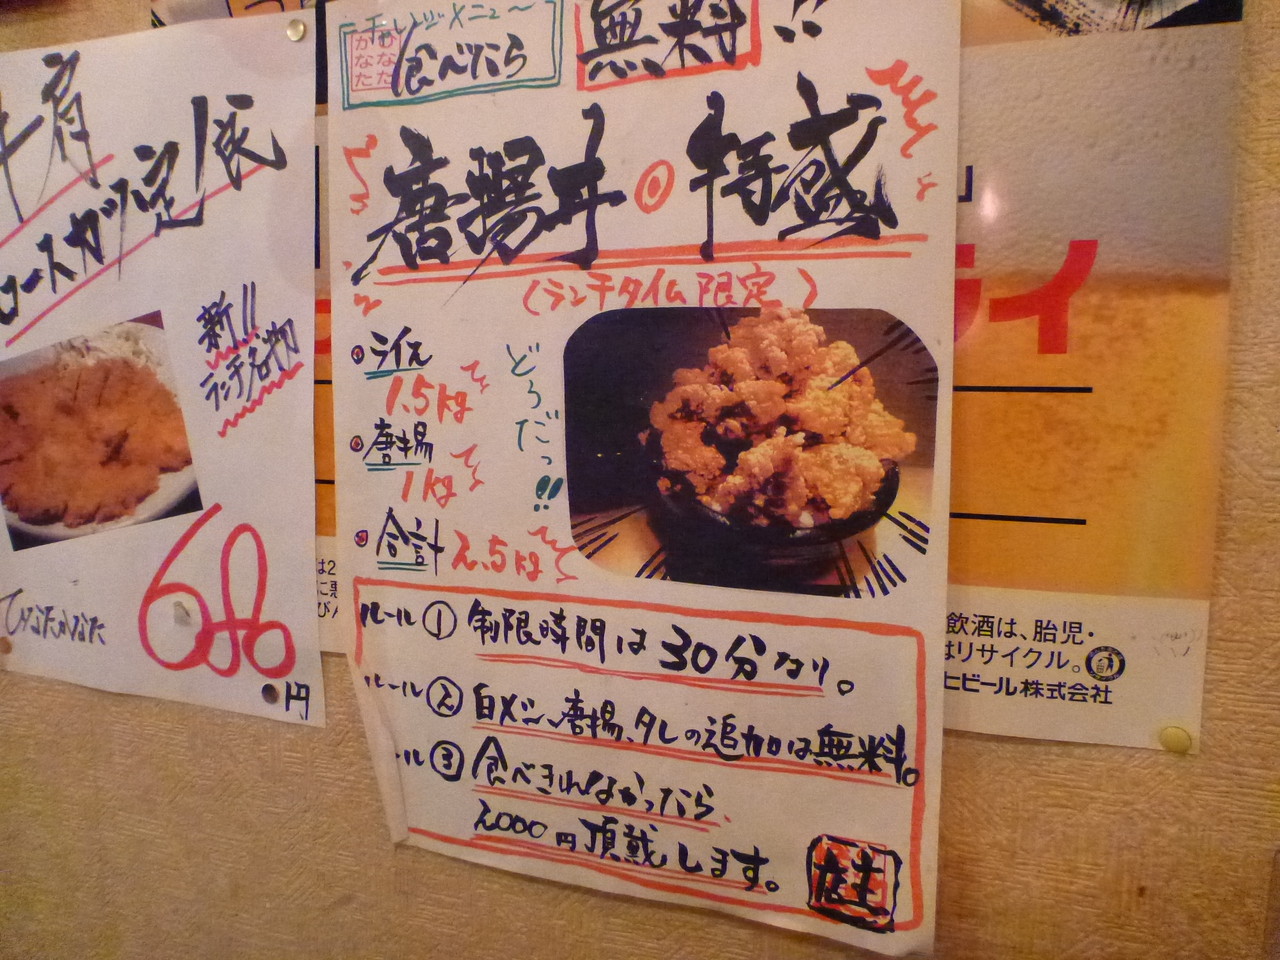 牛肩
ロースカツ定食
新!!
ランチ名物
ひなたかなた
680
円
チャレンジメニュー
ひなた
かなた
食べたら
無料!!
唐揚丼◎特盛
(ランチタイム限定)
ライス
1.5kg
唐揚
1kg
合計 2.5kg
どうだっ!!
ルール① 制限時間は30分なり。
ルール② 白メシ、唐揚、タレの追加は無料。
ール③ 食べきれなかったら、
2000円頂戴します。
ライ
飲酒は、胎児・
はリサイクル。
ヒビール株式会社